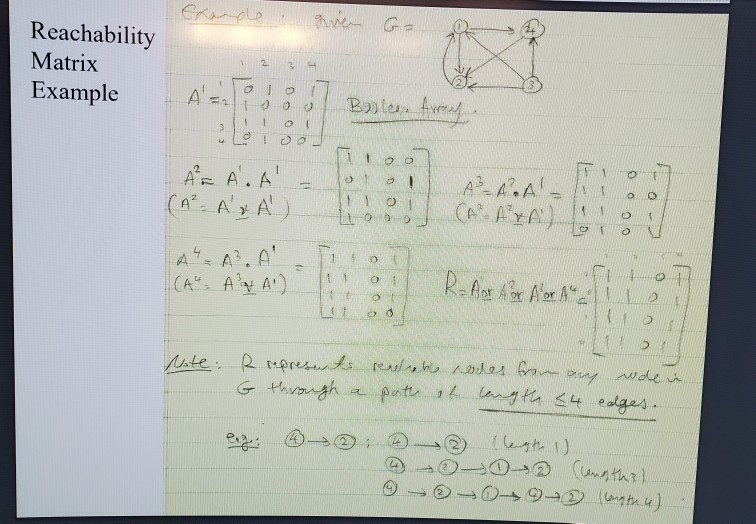 Reachability
Matrix
Example
Example : Given G =
1 4
2 3
1 2 3 4
A¹ =
1 0 1 0 1
2 1 0 0 0
3 1 1 0 1
4 0 1 0 0
Boolean Array.
A² = A¹ . A¹ =
(A² = A¹ x A¹)
1 1 0 0
0 1 0 1
1 1 0 1
1 0 0 0
A³ = A² . A¹ =
(A³ = A² x A¹)
1 1 0 1
1 1 0 0
1 1 0 1
0 1 0 1
A⁴ = A³ . A¹ =
(A⁴ = A³ x A¹)
1 1 0 1
1 1 0 1
1 1 0 1
1 1 0 0
R = A or A² or A³ or A⁴ =
1 1 0 1
1 1 0 1
1 1 0 1
1 1 0 1
Note: R represents reachable nodes from any node in
G through a path of length ≤4 edges.
e.g.: 4 → 2 ; 4 → 2 (length 1)
4 → 2 → 1 → 2 (length 3)
4 → 2 → 1 → 4 → 2 (length 4)